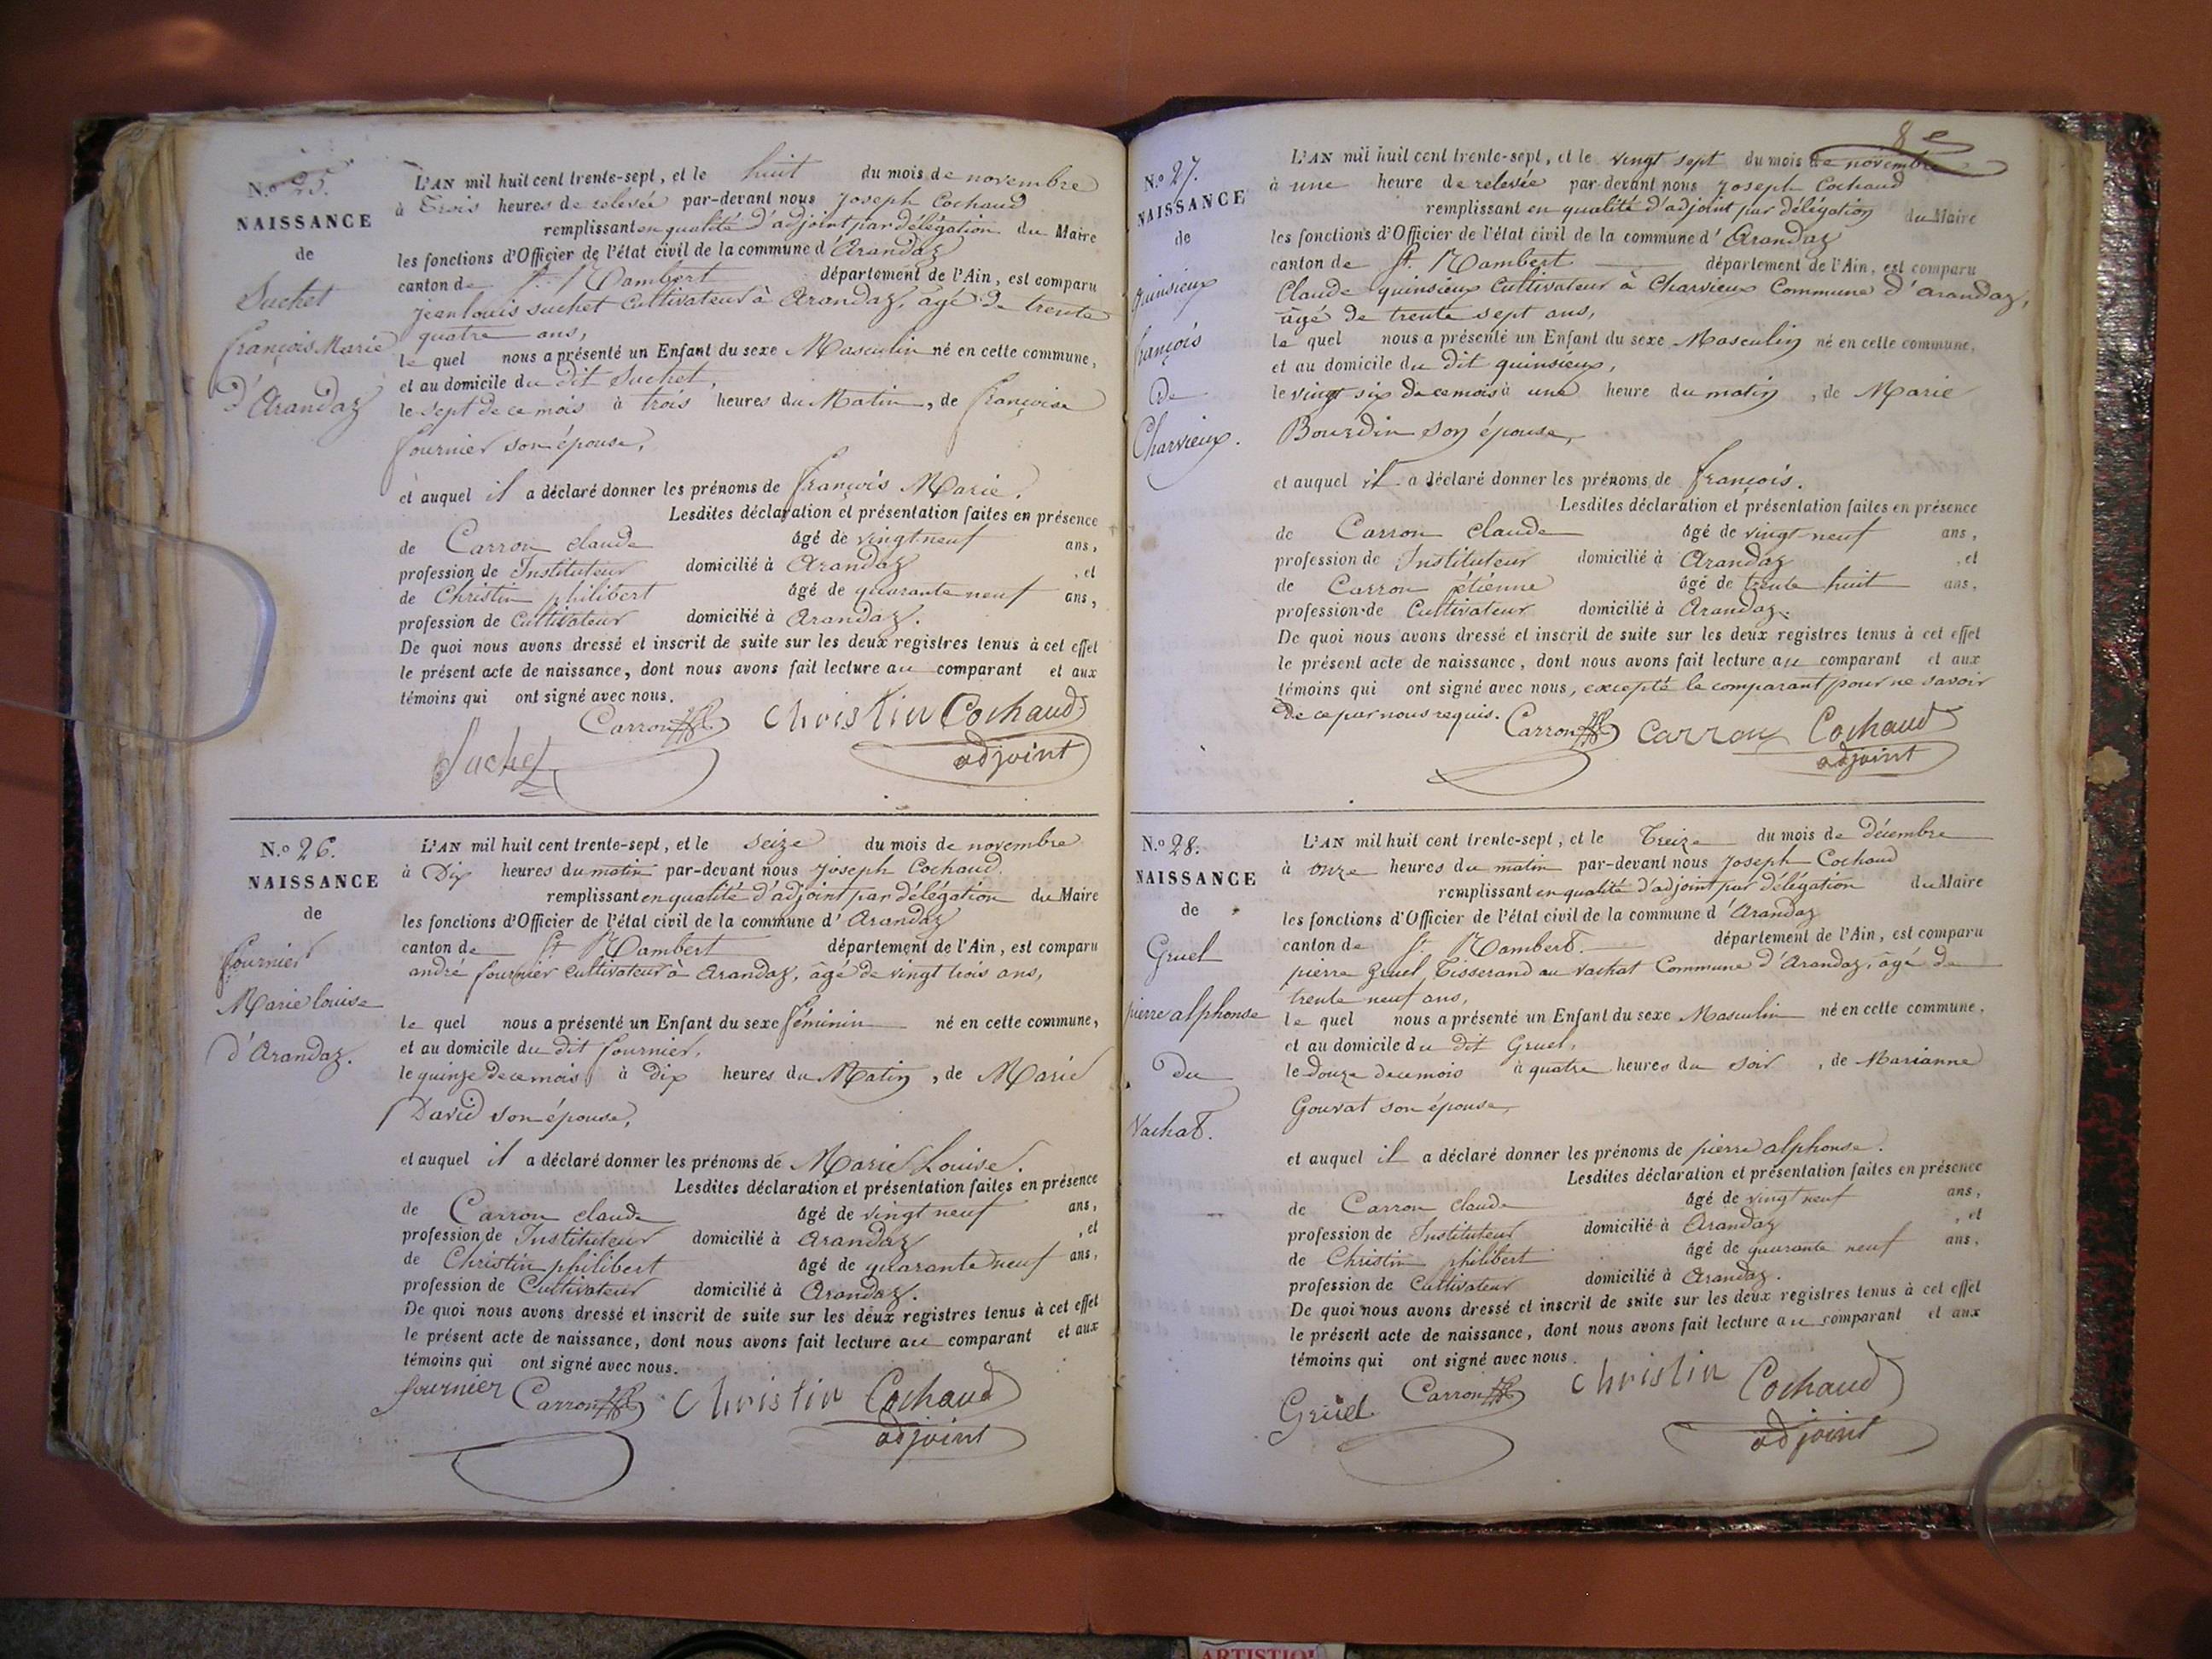 N.o 25.
NAISSANCE
de
Suchet
françois Marie
d'Arandaz
L'AN mil huit cent trente-sept, et le huit du mois de novembre
à Trois heures de relevée par-devant nous joseph Cochaud
remplissant en qualité d'adjoint par délégation du Maire
les fonctions d'Officier de l'état civil de la commune d'Arandaz
canton de St. Rambert département de l'Ain, est comparu
jean louis suchet Cultivateur à Arandaz, âgé de trente
quatre ans,
le quel nous a présenté un Enfant du sexe Masculin né en cette commune,
et au domicile du dit Suchet,
le sept de ce mois à trois heures du Matin, de françoise
fournier son épouse,
et auquel il a déclaré donner les prénoms de françois Marie.
Lesdites déclaration et présentation faites en présence
de Carron claude âgé de vingt neuf ans,
profession de Instituteur domicilié à Arandaz, et
de Christin philibert âgé de quarante neuf ans,
profession de Cultivateur domicilié à Arandaz.
De quoi nous avons dressé et inscrit de suite sur les deux registres tenus à cet effet
le présent acte de naissance, dont nous avons fait lecture au comparant et aux
témoins qui ont signé avec nous.
Carron Christin Cochaud
Suchet adjoint
N.o 26.
NAISSANCE
de
fournier
Marie louise
d'Arandaz.
L'AN mil huit cent trente-sept, et le seize du mois de novembre
à Dix heures du matin par-devant nous joseph Cochaud
remplissant en qualité d'adjoint par délégation du Maire
les fonctions d'Officier de l'état civil de la commune d'Arandaz
canton de St Rambert département de l'Ain, est comparu
andré fournier cultivateur à Arandaz, âgé de vingt trois ans,
le quel nous a présenté un Enfant du sexe féminin né en cette commune,
et au domicile du dit fournier,
le quinze de ce mois à dix heures du Matin, de Marie
David son épouse,
et auquel il a déclaré donner les prénoms de Marie Louise.
Lesdites déclaration et présentation faites en présence
de Carron claude âgé de vingt neuf ans,
profession de Instituteur domicilié à Arandaz, et
de Christin philibert âgé de quarante neuf ans,
profession de Cultivateur domicilié à Arandaz.
De quoi nous avons dressé et inscrit de suite sur les deux registres tenus à cet effet
le présent acte de naissance, dont nous avons fait lecture au comparant et aux
témoins qui ont signé avec nous.
fournier Carron Christin Cochaud
adjoint
8e
N.o 27.
NAISSANCE
de
quinsieux
françois
De
Charvieux.
L'AN mil huit cent trente-sept, et le vingt sept du mois de novembre
à une heure de relevée par-devant nous joseph Cochaud
remplissant en qualité d'adjoint par délégation du Maire
les fonctions d'Officier de l'état civil de la commune d'Arandaz
canton de St. Rambert département de l'Ain, est comparu
Claude quinsieux Cultivateur à Charvieux Commune d'arandaz,
âgé de trente sept ans,
le quel nous a présenté un Enfant du sexe Masculin né en cette commune,
et au domicile du dit quinsieux,
le vingt six de ce mois à une heure du matin, de Marie
Bourdin son épouse,
et auquel il a déclaré donner les prénoms de françois.
Lesdites déclaration et présentation faites en présence
de Carron claude âgé de vingt neuf ans,
profession de Instituteur domicilié à Arandaz, et
de Carron étienne âgé de trente huit ans,
profession de Cultivateur domicilié à Arandaz.
De quoi nous avons dressé et inscrit de suite sur les deux registres tenus à cet effet
le présent acte de naissance, dont nous avons fait lecture au comparant et aux
témoins qui ont signé avec nous, excepté le comparant pour ne savoir
de ce par nous requis. Carron Carron Cochaud
adjoint
N.o 28.
NAISSANCE
de
Gruel
pierre alphonse
Du
Vachat.
L'AN mil huit cent trente-sept, et le Treize du mois de décembre
à onze heures du matin par-devant nous joseph Cochaud
remplissant en qualité d'adjoint par délégation du Maire
les fonctions d'Officier de l'état civil de la commune d'Arandaz
canton de St Rambert. département de l'Ain, est comparu
pierre gruel, Tisserand au vachat Commune d'Arandaz, âgé de
trente neuf ans,
le quel nous a présenté un Enfant du sexe Masculin né en cette commune,
et au domicile du dit Gruel,
le douze de ce mois à quatre heures du soir, de Marianne
Gouvat son épouse,
et auquel il a déclaré donner les prénoms de pierre alphonse.
Lesdites déclaration et présentation faites en présence
de Carron claude âgé de vingt neuf ans,
profession de Instituteur domicilié à Arandaz, et
de Christin philibert âgé de quarante neuf ans,
profession de Cultivateur domicilié à Arandaz.
De quoi nous avons dressé et inscrit de suite sur les deux registres tenus à cet effet
le présent acte de naissance, dont nous avons fait lecture au comparant et aux
témoins qui ont signé avec nous.
Gruel Carron Christin Cochaud
adjoint